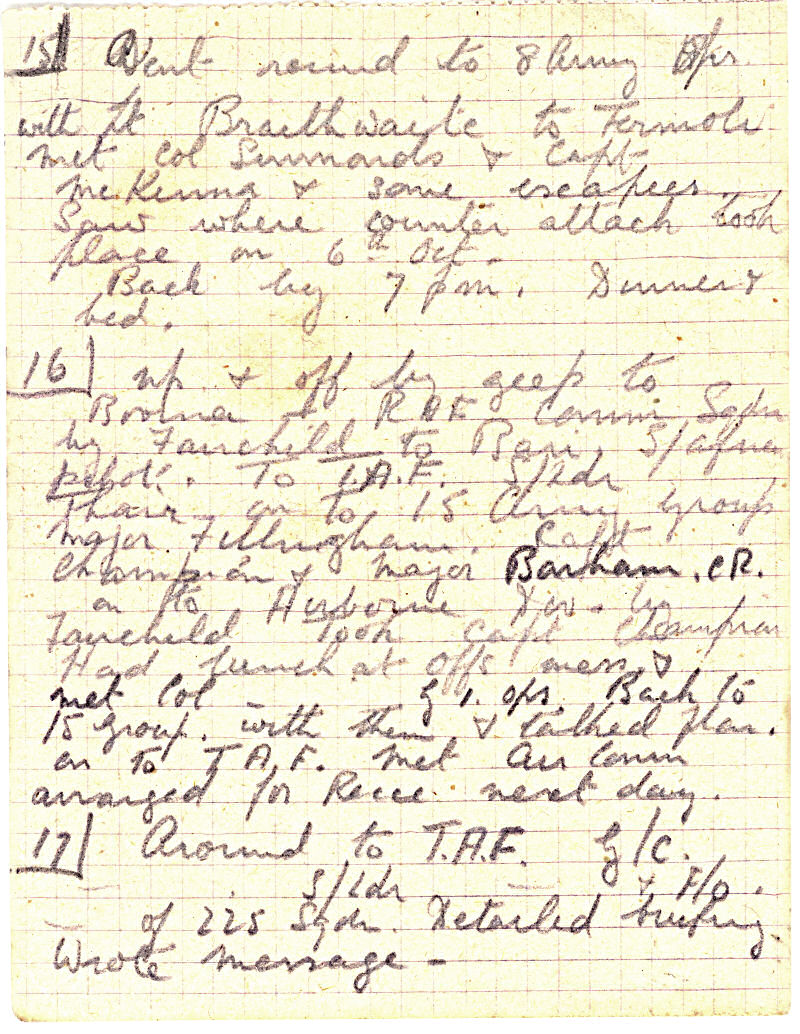 15| Went round to 8 Army H/qrs.
with Lt Braithwaite to Termoli
met Col Simmonds & Capt
McKenna & some escapees.
Saw where counter attack took
place on 6th Oct.
Back by 7 pm. Dinner &
bed.
16| up & off by geep to
RAF Comm Sqdn
by Fairchild to Bari. S/African
pilot. To T.A.F. S/Ldr
on to 15 Army group
Major Fillingham. Capt
Champion & Major Barham. CR.
on to Airborne Div. by
Fairchild took Capt Champion
Had lunch at offs mess &
met Col G 1. ops. Back to
15 Group. with them & talked plan.
on to T.A.F. met Air Comm
arranged for Recce next day.
17| Around to T.A.F. G/C.
S/Ldr & F/O.
of 225 Sqdn. Detailed briefing
Wrote message -